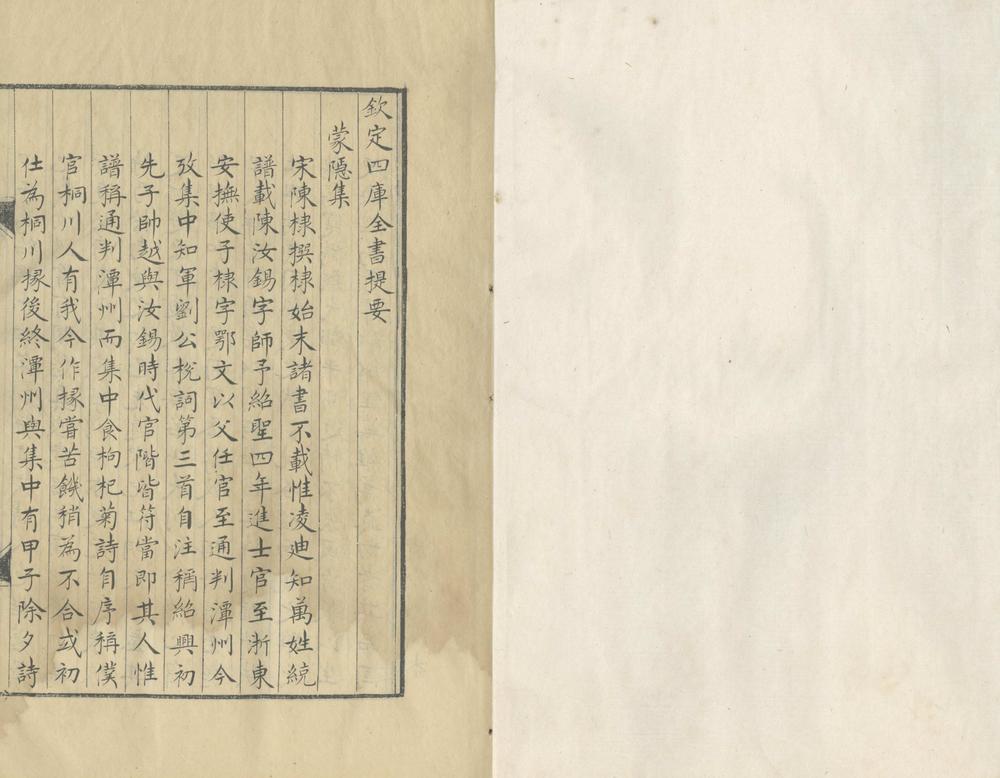 欽定四庫全書提要
蒙隱集
宋陳棣撰棣始末諸書不載惟凌廸知萬姓統
譜載陳汝錫字師予紹聖四年進士官至浙東
安撫使子棣字鄂文以父任官至通判潭州今
攷集中知軍劉公挽詞第三首自注稱紹興初
先子帥越與汝錫時代官階皆符當即其人惟
譜稱通判潭州而集中食枸杞菊詩自序稱僕
官桐川人有我今作掾嘗苦饑稍為不合或初
仕為桐川掾後終潭州與集中有甲子除夕詩